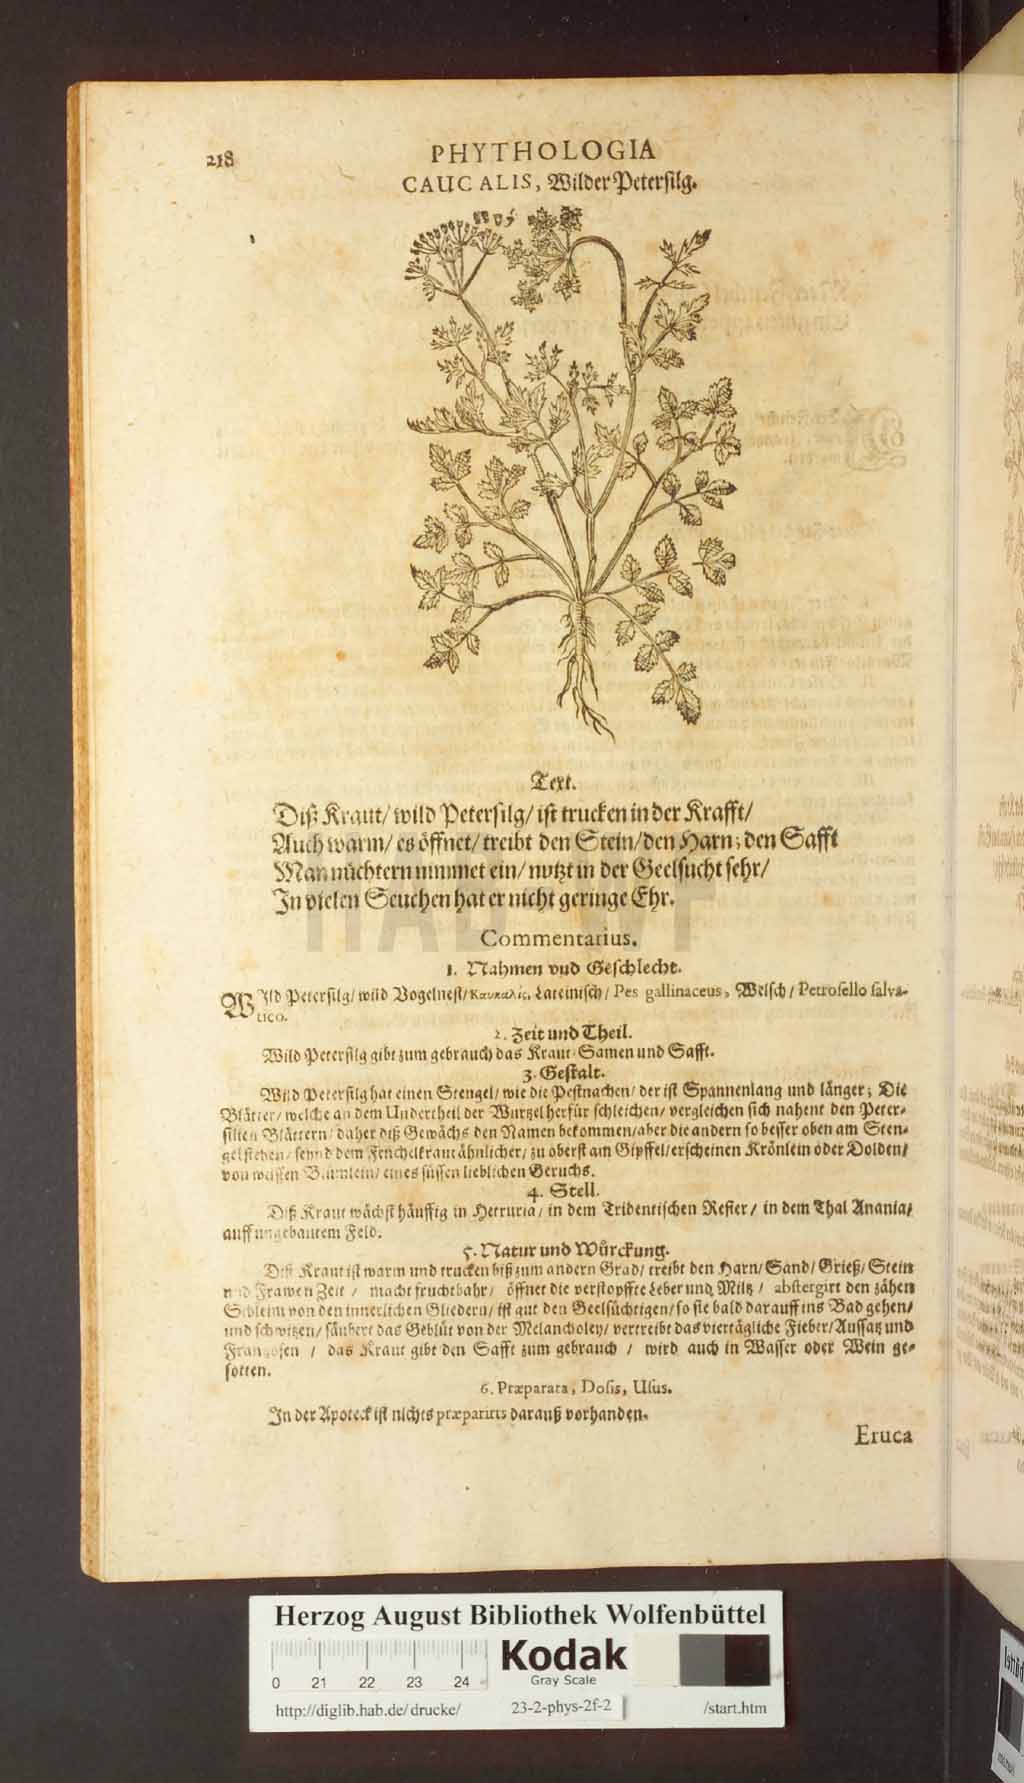 218
PHYTHOLOGIA
CAUCALIS, Wilder Petersilg.
Text.
Diß Kraut/ wild Petersilg/ ist trucken in der Krafft/
Auch warm/ es öffnet/ treibt den Stein/ den Harn; den Safft
Man nüchtern nimmet ein/ nutzt in der Geelsucht sehr/
In vielen Seuchen hat er nicht geringe Ehr.
Commentarius.
1. Nahmen vnd Geschlecht.
Wild Petersilg/ wild Vogelnest/ Καυκαλίς, Lateinisch/ Pes gallinaceus, Welsch/ Petrosello salva-
tico.
2. Zeit und Theil.
Wild Petersilg gibt zum gebrauch das Kraut Samen und Safft.
3. Gestalt.
Wild Petersilg hat einen Stengel/ wie die Pestnachen/ der ist Spannenlang und länger; Die
Blätter/ welche an dem Undertheil der Wurtzel herfür schleichen/ vergleichen sich nahent den Peter-
silien Blättern/ daher diß Gewächs den Namen bekommen/ aber die andern so besser oben am Sten-
gel stehen/ seynd dem Fenchelkraut ähnlicher/ zu oberst am Gipffel/ erscheinen Krönlein oder Dolden/
von weissen Blümlein/ eines süssen lieblichen Geruchs.
4. Stell.
Diß Kraut wächst häuffig in Hetruria/ in dem Tridentischen Refier/ in dem Thal Anania/
auff ungebautem Feld.
5. Natur und Würckung.
Diß Kraut ist warm und trucken biß zum andern Grad/ treibt den Harn/ Sand/ Grieß/ Stein
und Frawen Zeit/ macht fruchtbahr/ öffnet die verstopffte Leber und Miltz/ abstergirt den zähen
Schleim von den innerlichen Gliedern/ ist gut den Geelsüchtigen/ so sie bald darauff ins Bad gehen/
und schwitzen/ säubert das Geblüt von der Melancholey/ vertreibt das viertägliche Fieber/ Aussatz und
Frantzosen / das Kraut gibt den Safft zum gebrauch / wird auch in Wasser oder Wein ge-
sotten.
6. Præparata, Dosis, Usus.
In der Apoteck ist nichts præparirts darauß vorhanden.
Eruca
HAB
Herzog August Bibliothek Wolfenbüttel
0 21 22 23 24
Kodak
Gray Scale
http://diglib.hab.de/drucke/ 23-2-phys-2f-2 /start.htm